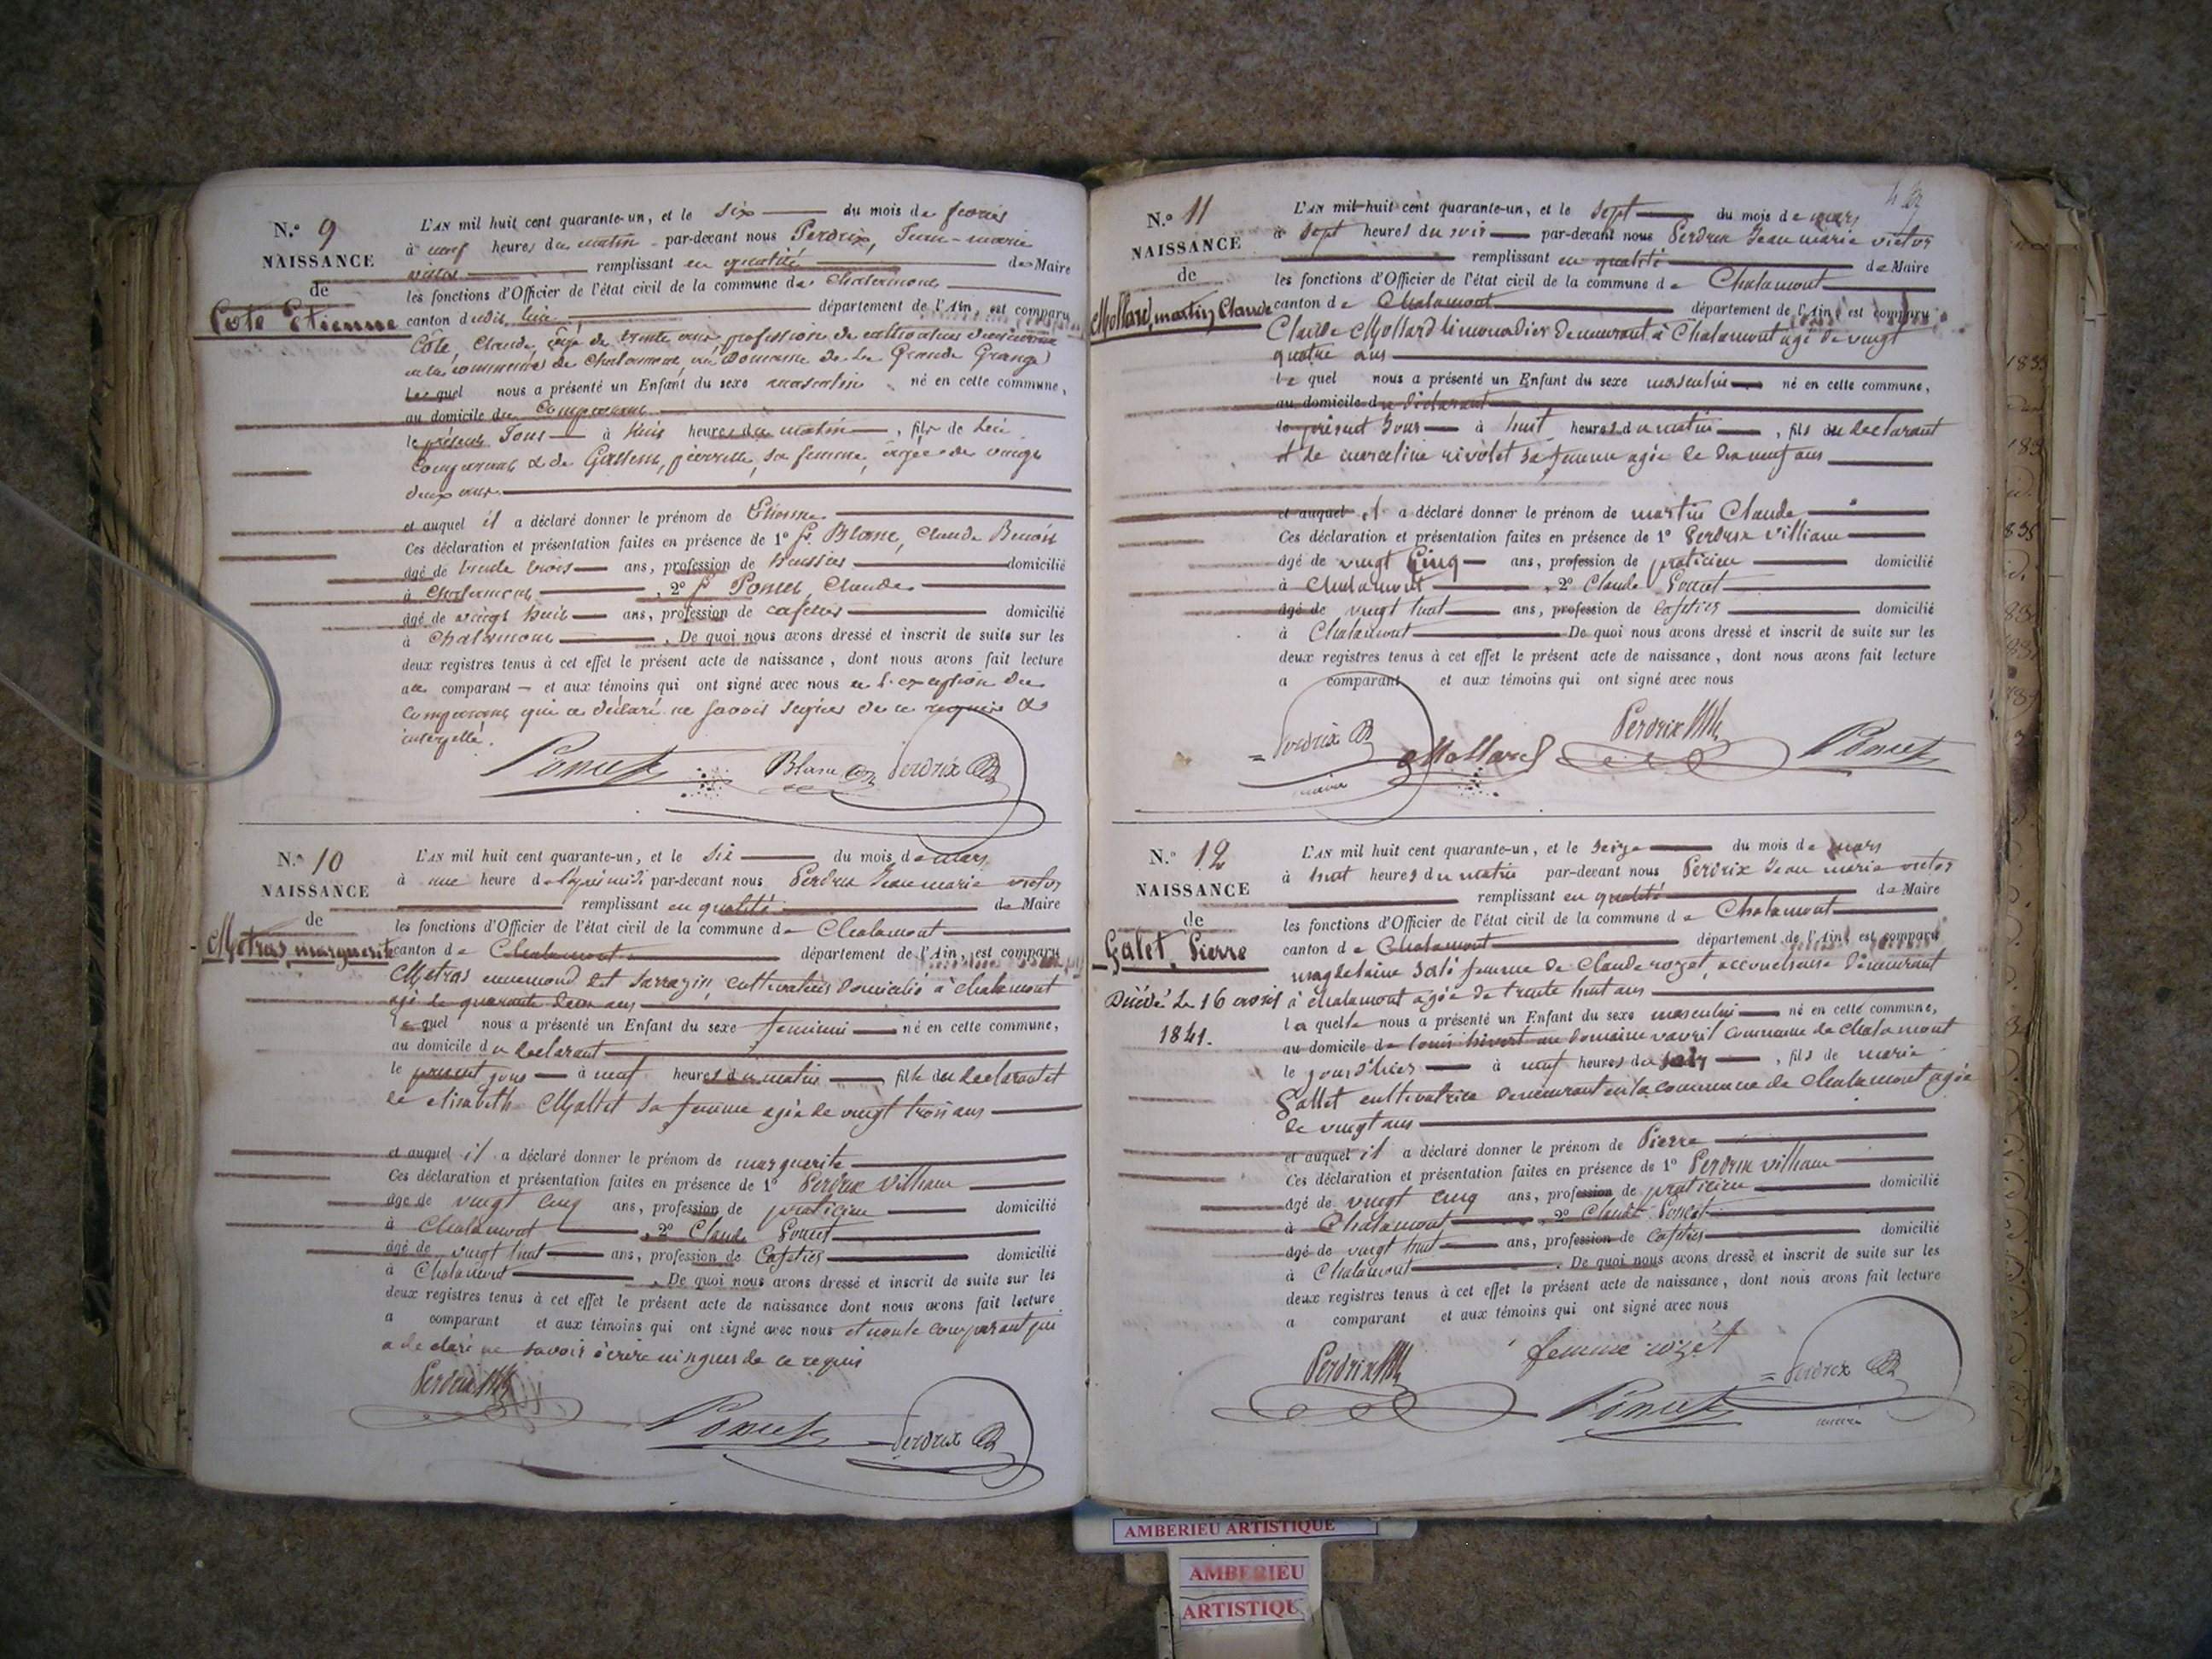 N.° 9
NAISSANCE
de
Cote Etienne
L'AN mil huit cent quarante-un, et le six du mois de fevrier
à neuf heures du matin par-devant nous Perdrix, Jean-marie
victor remplissant en qualité de Maire
les fonctions d'Officier de l'état civil de la commune de Chalamont
canton dudit lieu département de l'Ain, est comparu
Cote, Claude, âgé de trente ans, profession de cultivateur demeurant
en la commune de Chalamont, au Domaine de la Grande Grange
lequel nous a présenté un Enfant du sexe masculin né en cette commune,
au domicile du Comparant
le présent Jour à huit heures du matin, fils de lui
Comparant & de Gallien, pierrette, sa femme, âgée de vingt
deux ans.
et auquel il a déclaré donner le prénom de Etienne
Ces déclaration et présentation faites en présence de 1° sr Blanc, Claude Benoit
âgé de trente trois ans, profession de huissier domicilié
à Chalamont, 2° sr Poncet, Claude
âgé de vingt huit ans, profession de cafetier domicilié
à Chalamont. De quoi nous avons dressé et inscrit de suite sur les
deux registres tenus à cet effet le présent acte de naissance, dont nous avons fait lecture
au comparant et aux témoins qui ont signé avec nous à l'exception du
Comparant qui a déclaré ne savoir signer de ce requis &
interpellé.
Poncet Blanc Perdrix
N.° 10
NAISSANCE
de
Metras marguerite
L'AN mil huit cent quarante-un, et le six du mois de mars
à une heure de l'après midi par-devant nous Perdrix Jean marie victor
remplissant en qualité de Maire
les fonctions d'Officier de l'état civil de la commune de Chalamont
canton de Chalamont département de l'Ain, est comparu
Metras ennemond dit sarrazin, cultivateur domicilié à chalamont
agé de quarante deux ans
lequel nous a présenté un Enfant du sexe feminin né en cette commune,
au domicile du declarant
le present jour à neuf heures du matin fille du declarant et
de elisabeth Mallet sa femme agée de vingt trois ans
et auquel il a déclaré donner le prénom de marguerite
Ces déclaration et présentation faites en présence de 1° Perdrix villiam
âgé de vingt cinq ans, profession de praticien domicilié
à Chalamont, 2° Claude Poncet
âgé de vingt huit ans, profession de Cafetier domicilié
à Chalamont. De quoi nous avons dressé et inscrit de suite sur les
deux registres tenus à cet effet le présent acte de naissance dont nous avons fait lecture
a comparant et aux témoins qui ont signé avec nous et non le comparant qui
a declaré ne savoir écrire ni signer de ce requis
Perdrix
Poncet Perdrix
N.° 11
NAISSANCE
de
Mollard, martin Claude
L'AN mil huit cent quarante-un, et le sept du mois de mars
à sept heures du soir par-devant nous Perdrix Jean marie victor
remplissant en qualité de Maire
les fonctions d'Officier de l'état civil de la commune de Chalamont
canton de Chalamont département de l'Ain est comparu
Claude Mollard limonadier demeurant à Chalamont agé de vingt
quatre ans
lequel nous a présenté un Enfant du sexe masculin né en cette commune,
au domicile du déclarant
le présent Jour à huit heures du matin, fils du declarant
et de marceline rivolet sa femme agée de dix neuf ans
et auquel il a déclaré donner le prénom de martin Claude
Ces déclaration et présentation faites en présence de 1° Perdrix villiam
âgé de vingt Cinq ans, profession de praticien domicilié
à Chalamont, 2° Claude Poncet
âgé de vingt huit ans, profession de Cafetier domicilié
à Chalamont De quoi nous avons dressé et inscrit de suite sur les
deux registres tenus à cet effet le présent acte de naissance, dont nous avons fait lecture
a comparant et aux témoins qui ont signé avec nous
Perdrix Mollard Perdrix Poncet
maire
N.° 12
NAISSANCE
de
Galet, Pierre
Décédé le 16 avril
1841.
L'AN mil huit cent quarante-un, et le seize du mois de mars
à huit heures du matin par-devant nous Perdrix Jean marie victor
remplissant en qualité de Maire
les fonctions d'Officier de l'état civil de la commune de Chalamont
canton de Chalamont département de l'Ain est comparu
magdelaine femme de Claude rozet, accoucheuse demeurant
à chalamont agée de trente huit ans
laquelle nous a présenté un Enfant du sexe masculin né en cette commune,
au domicile de louis au domaine vavril commune de Chalamont
le jour d'hier à neuf heures du soir, fils de marie
Gallet cultivatrice demeurant en la commune de Chalamont agée
de vingt ans
et auquel il a déclaré donner le prénom de Pierre
Ces déclaration et présentation faites en présence de 1° Perdrix villiam
âgé de vingt cinq ans, profession de praticien domicilié
à Chalamont, 2° Claude Poncet
âgé de vingt huit ans, profession de Cafetier domicilié
à Chalamont. De quoi nous avons dressé et inscrit de suite sur les
deux registres tenus à cet effet le présent acte de naissance, dont nous avons fait lecture
a comparant et aux témoins qui ont signé avec nous
Perdrix femme rozet Perdrix
Poncet maire
AMBERIEU ARTISTIQUE
AMBERIEU
ARTISTIQU